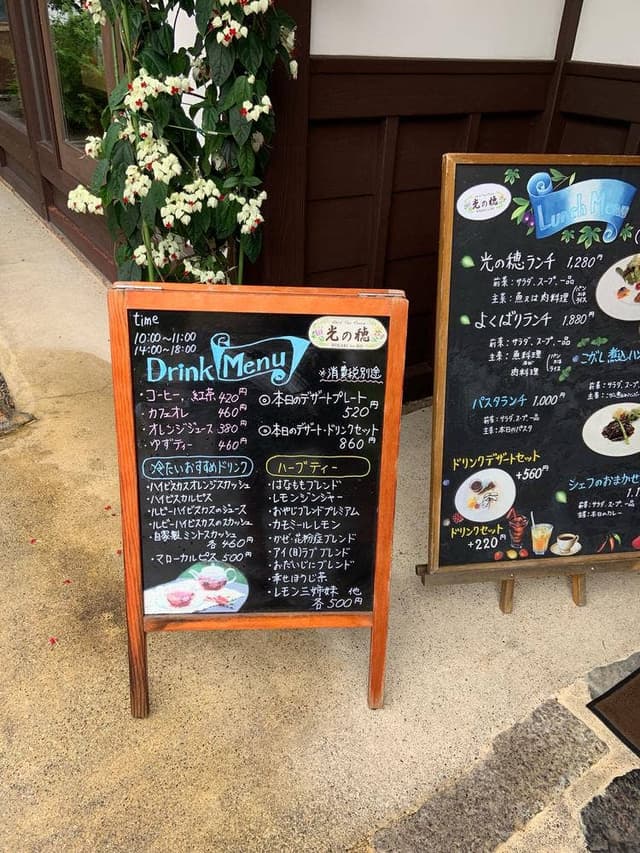 time
10:00〜11:00
14:00〜18:00
Drink Menu
光の穂
HIKARI no HO
※消費税別途
・コーヒー、紅茶 420円
・カフェオレ 460円
・オレンジジュース 380円
・ゆずティー 460円
◎本日のデザートプレート
520円
◎本日のデザート・ドリンクセット
860円
冷たいおすすめドリンク
・ハイビスカスオレンジスカッシュ
・ハイビスカルピス
・ルビーハイビスカスのジュース
・ルビーハイビスカスのスカッシュ
・自家製ミントスカッシュ
各460円
・マローカルピス 500円
ハーブティー
・はなももブレンド
・レモンジンジャー
・おやじブレンドプレミアム
・カモミールレモン
・かぜ・花粉症ブレンド
・アイ(目)ラブブレンド
・おだいじにブレンド
・幸せほうじ茶
・レモン三姉妹 他
各500円
光の穂
Lunch Menu
光の穂ランチ 1,280円
前菜:サラダ、スープ、一品
主菜:魚又は肉料理
パン
又は
ライス
よくばりランチ 1,880円
前菜:サラダ、スープ、一品
主菜:魚料理
肉料理
パン
又は
ライス
パスタランチ 1,000円
前菜:サラダ、スープ、一品
主菜:本日のパスタ
ドリンクデザートセット
+560円
ドリンクセット
+220円
こがし煮込ハン
前菜:サラダ、スープ
シェフのおまかせ
前菜:サラダ、ス
主菜:本日のカレー